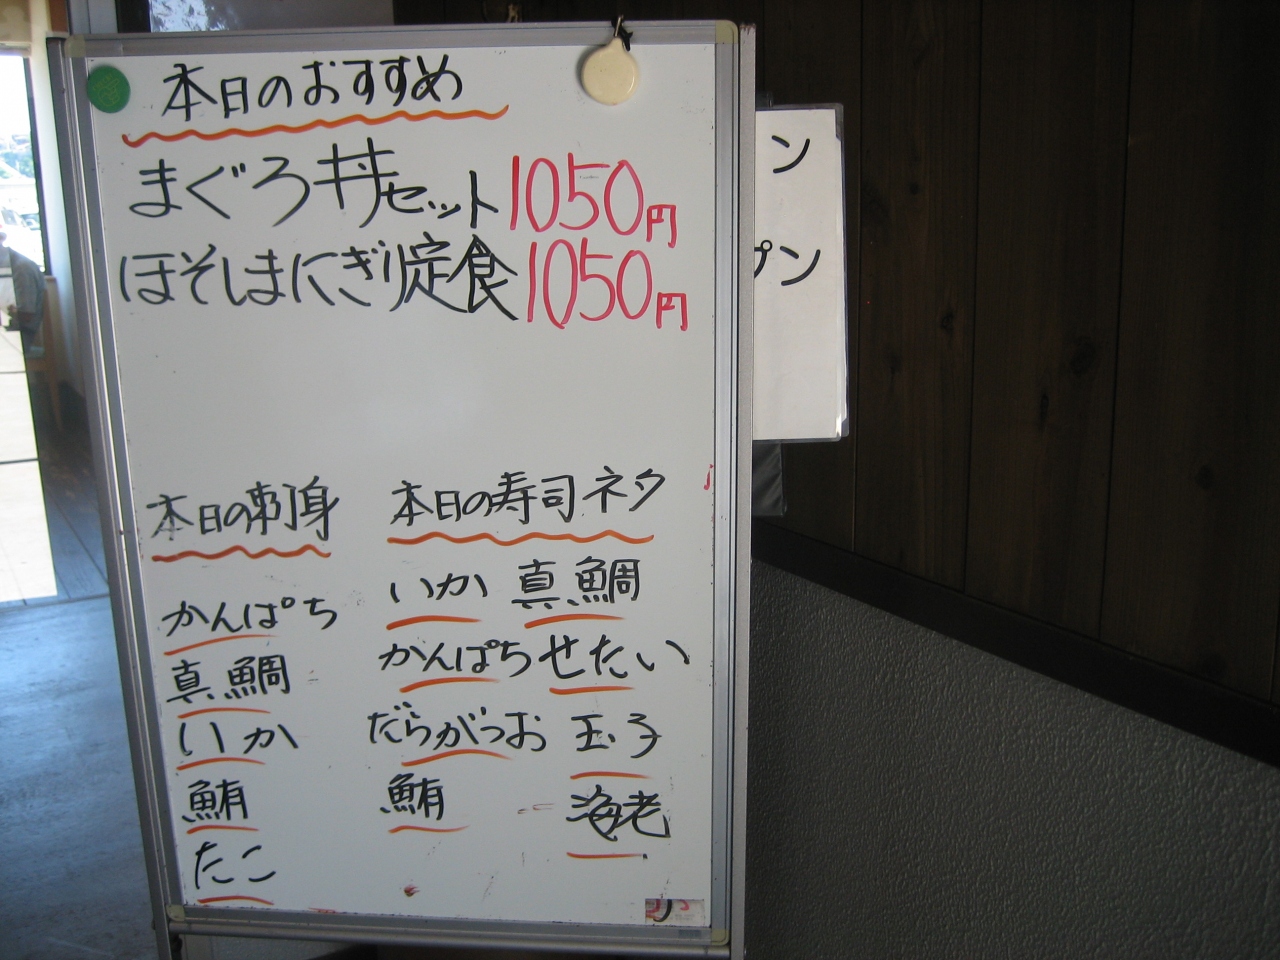 本日のおすすめ
まぐろ丼セット1050円
ほそしまにぎり定食1050円
本日の刺身
かんぱち
真鯛
いか
鮪
たこ
本日の寿司ネタ
いか 真鯛
かんぱち せたい
だらがつお 玉子
鮪 海老
ン
プン